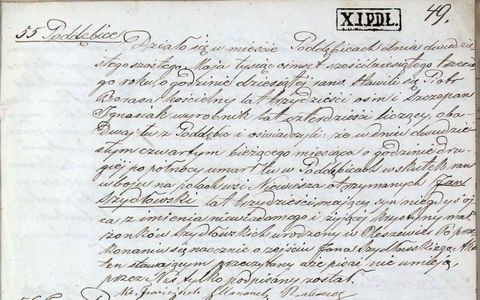 X.I.PDŁ.
49.
55 Poddębice
Działo się w mieście Poddębicach dnia dwudzie-
stego szóstego Maja tysiąc ośmset sześćdziesiątego trzecie-
go roku, o godzinie dziesiątej rano, stawili się Piotr
Borasa kościelny lat trzydzieści ośm i Szczepan
Ignasiak wyrobnik lat czterdzieści liczący, oba-
dwaj tu z Poddębic i oświadczyli: że w dniu dwudzie-
stym czwartym bieżącego miesiąca o godzinie dru-
giéj po północy umarł tu w Poddębicach w skutek ran
w boju na polach wsi Niewiesza otrzymanych Jan
Szydłowski lat trzydzieści mający syn niegdyś oj-
ca z imienia niewiadomego i żyjącéj Krystyny mał-
żonków Szydłowskich urodzony w Oleszewie. Po prze-
konaniu się naocznie o zejściu Jana Szydłowskiego, Akt
ten stawającym przeczytany ale pisać nie umieją
przez Nas tylko podpisany został.